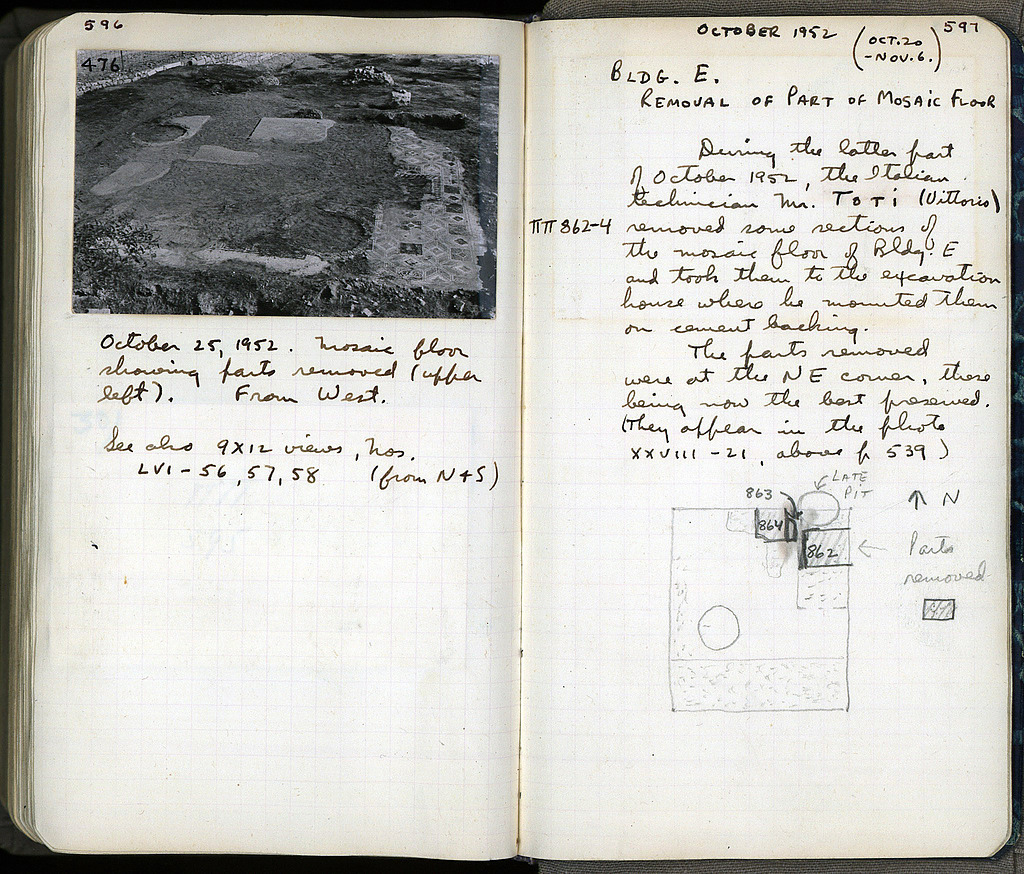 596
476
October 25, 1952. Mosaic floor
showing parts removed (upper
left). From West.
See also 9x12 views, Nos.
LVI-56, 57, 58 (from N+S)
OCTOBER 1952 (OCT. 20
-NOV. 6.) 597
BLDG. E.
REMOVAL OF PART OF MOSAIC FLOOR
During the latter part
of October 1952, the Italian
technician Mr. TOTI (Vittorio)
ΠΠ 862-4 removed some sections of
the mosaic floor of Bldg. E
and took them to the excavation
house where he mounted them
on cement backing.
The parts removed
were at the NE corner, these
being now the best preserved.
(They appear in the photo
XXVIII-21, above p 539)
863
LATE
PIT
↑ N
864
862
← Parts
removed